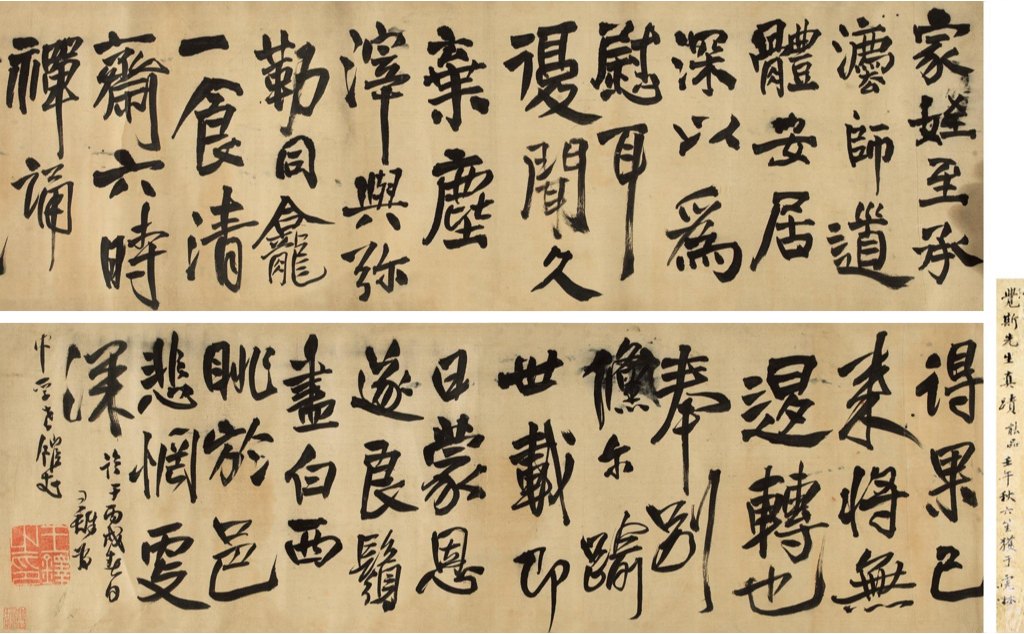 家姪至承
灋師道
體安居
深以爲
慰耳
復聞久
棄塵
滓與弥
勒同龕
一食清
齋六時
禪誦
得果已
來將無
退轉也
奉別
儵尔踰
世載即
日蒙恩
遂良鬚
盡白西
眺於邑
悲惘更
深
丙戌春日
王鐸之印
覺斯先生真蹟 壬午秋六笙獲于